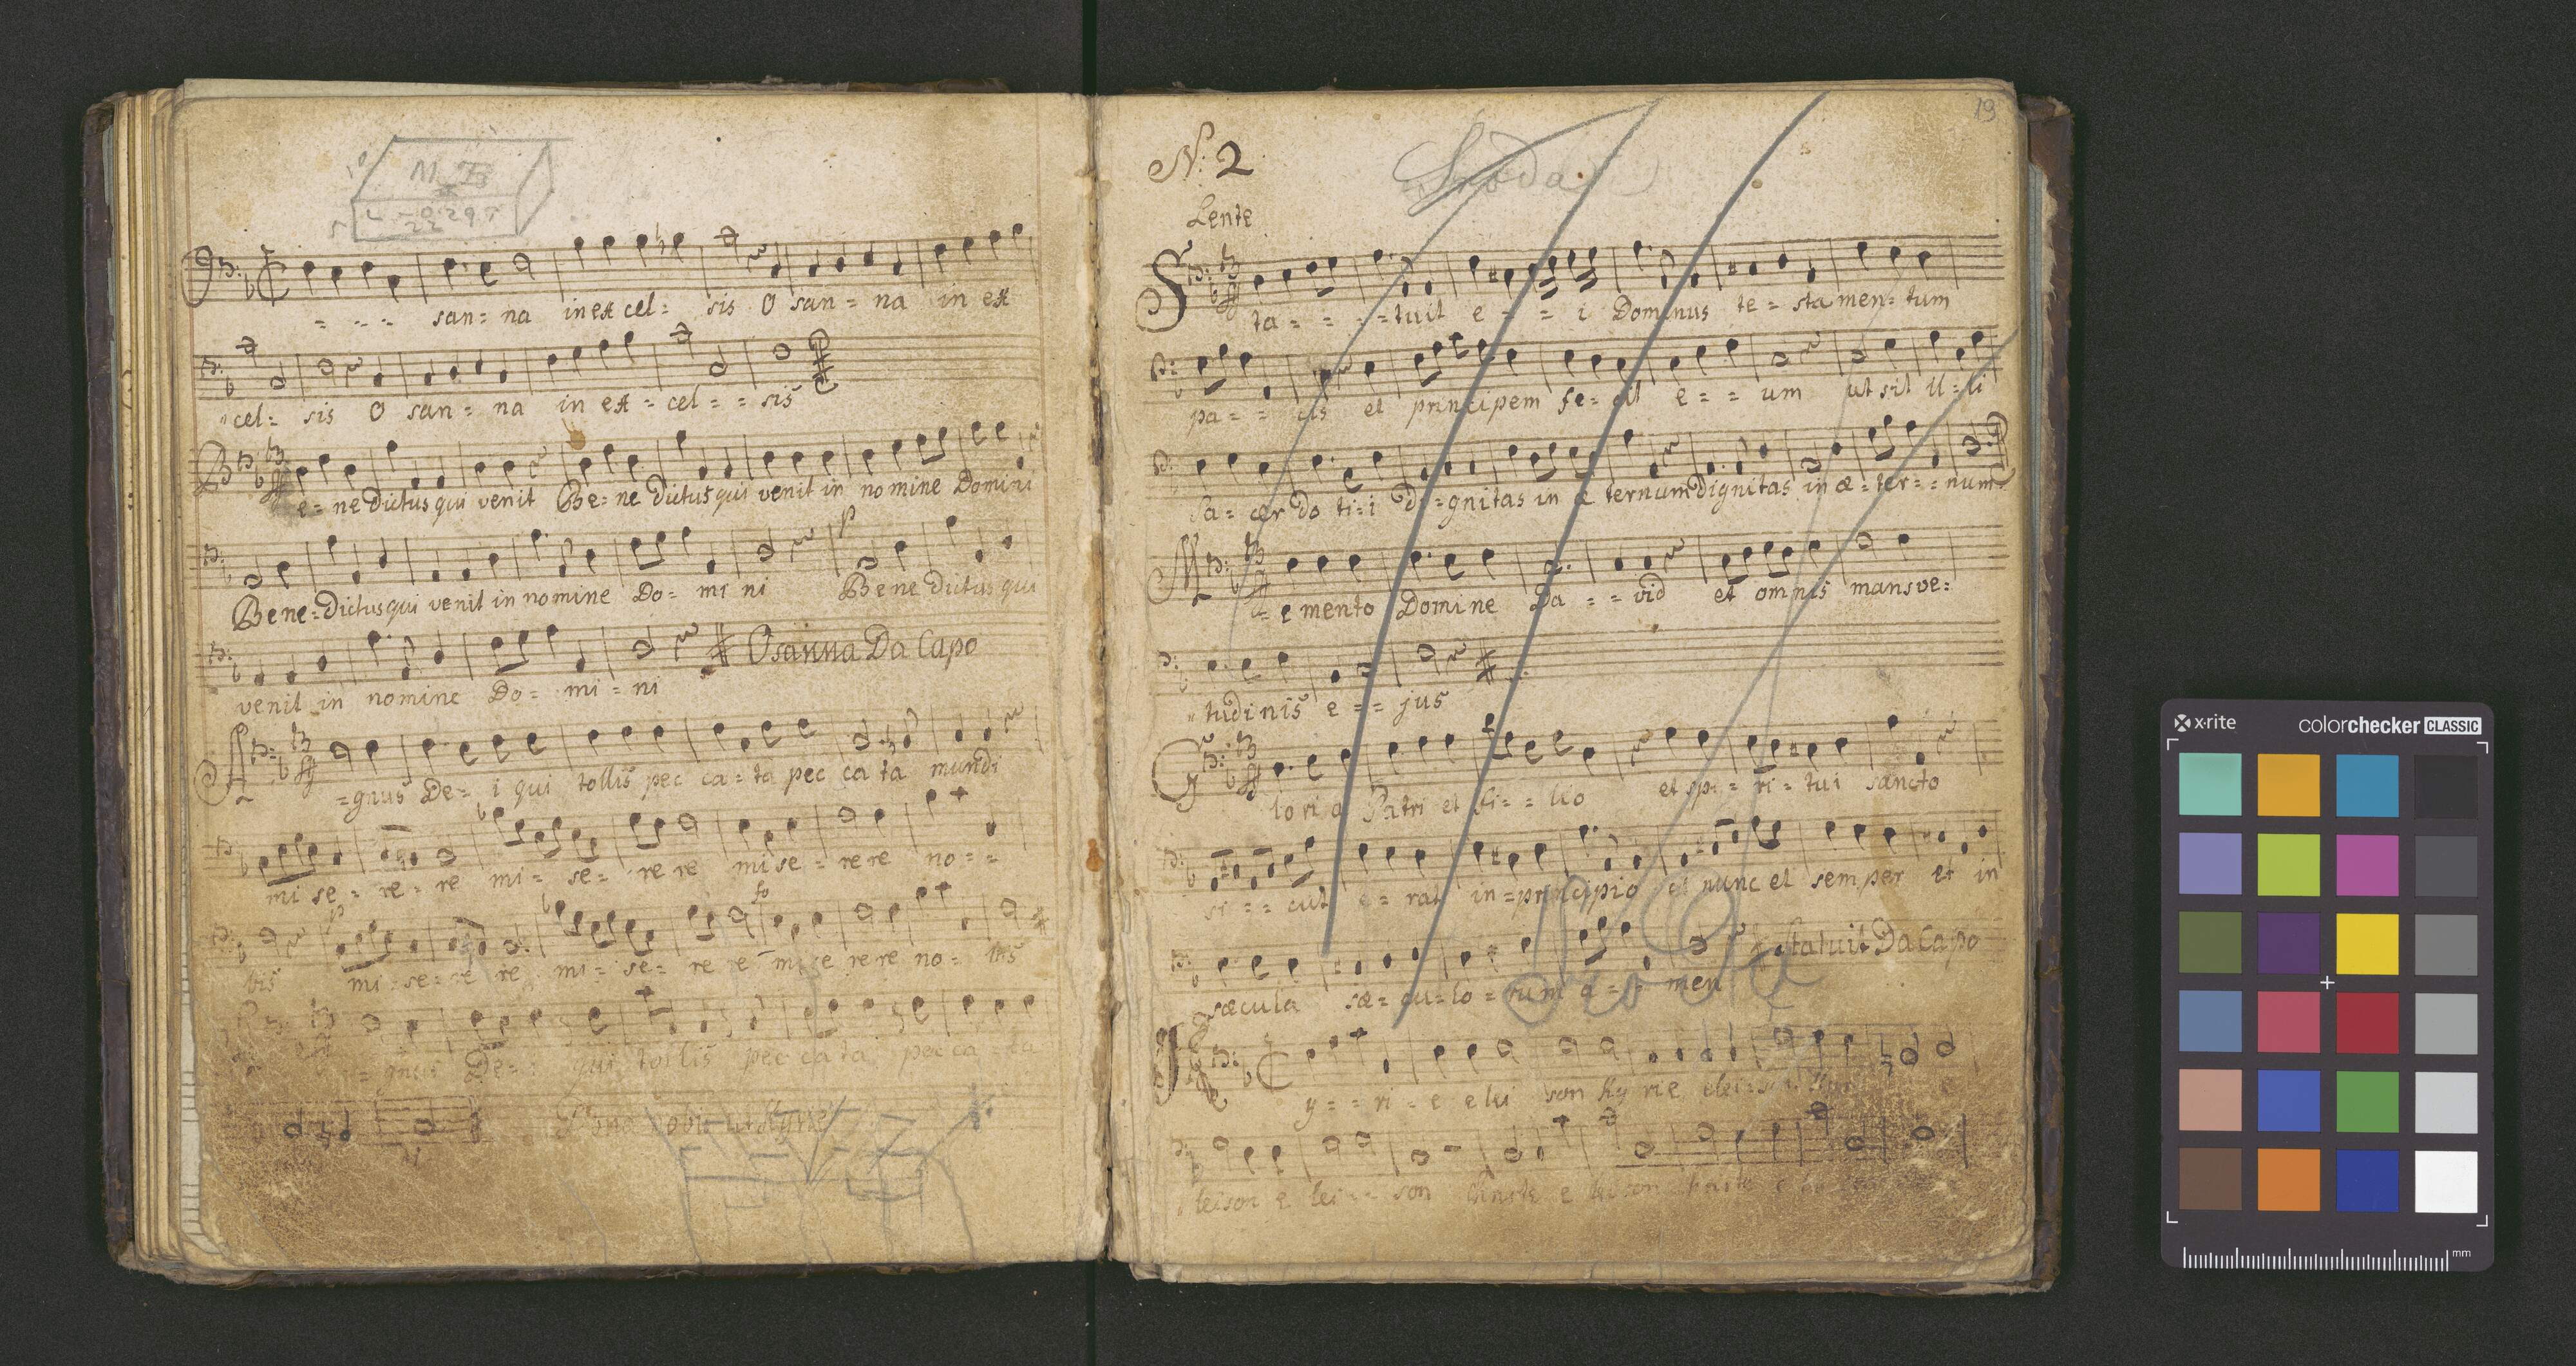 = -- =- san= na in ex cel= sis O san= na in ex
"cel= sis O san= na in ex= cel= = sis
Be= ne Dictus qui venit Be= ne dictus qui venit in nomine Domini
Bene=dictus qui venit in nomine Do= mi ni Bene dictus qui
venit in nomine Do= mi= ni Osanna Da Capo
A =gnus De= i qui tollis pec ca= ta pec ca ta mundi
mi se= re= re mi= se= re re mi se= re re no= =
bis mi= se= re re mi= se= re re mi se re re no= bis
= gnus De= i qui tollis pec ca ta pec ca ta
Dona nobis ut Kyrie
19
N: 2
Sroda
Lente
Sta= = =tuit e= = i Dominus te= stamen= tum
pa= = cis et principem fe= cit e= = um ut sit il= li
Sa= cer do ti=i di=gnitas in æ ternum Dignitas in æ=ter= =num
M= e mento Domine Da= = vid et omnis mansve=
"tudinis e= = jus
Glori a Patri et fi= = lio et spi= ri= tui sancto
si= = cut e= rat in=principio et nunc et semper et in
sæcula sæ= cu=lo= rum a= = men Statuit Da Capo
Ky= = ri= e e lei son Ky rie elei=son
leison e lei= = son Christe e leison
x·rite colorchecker CLASSIC
mm